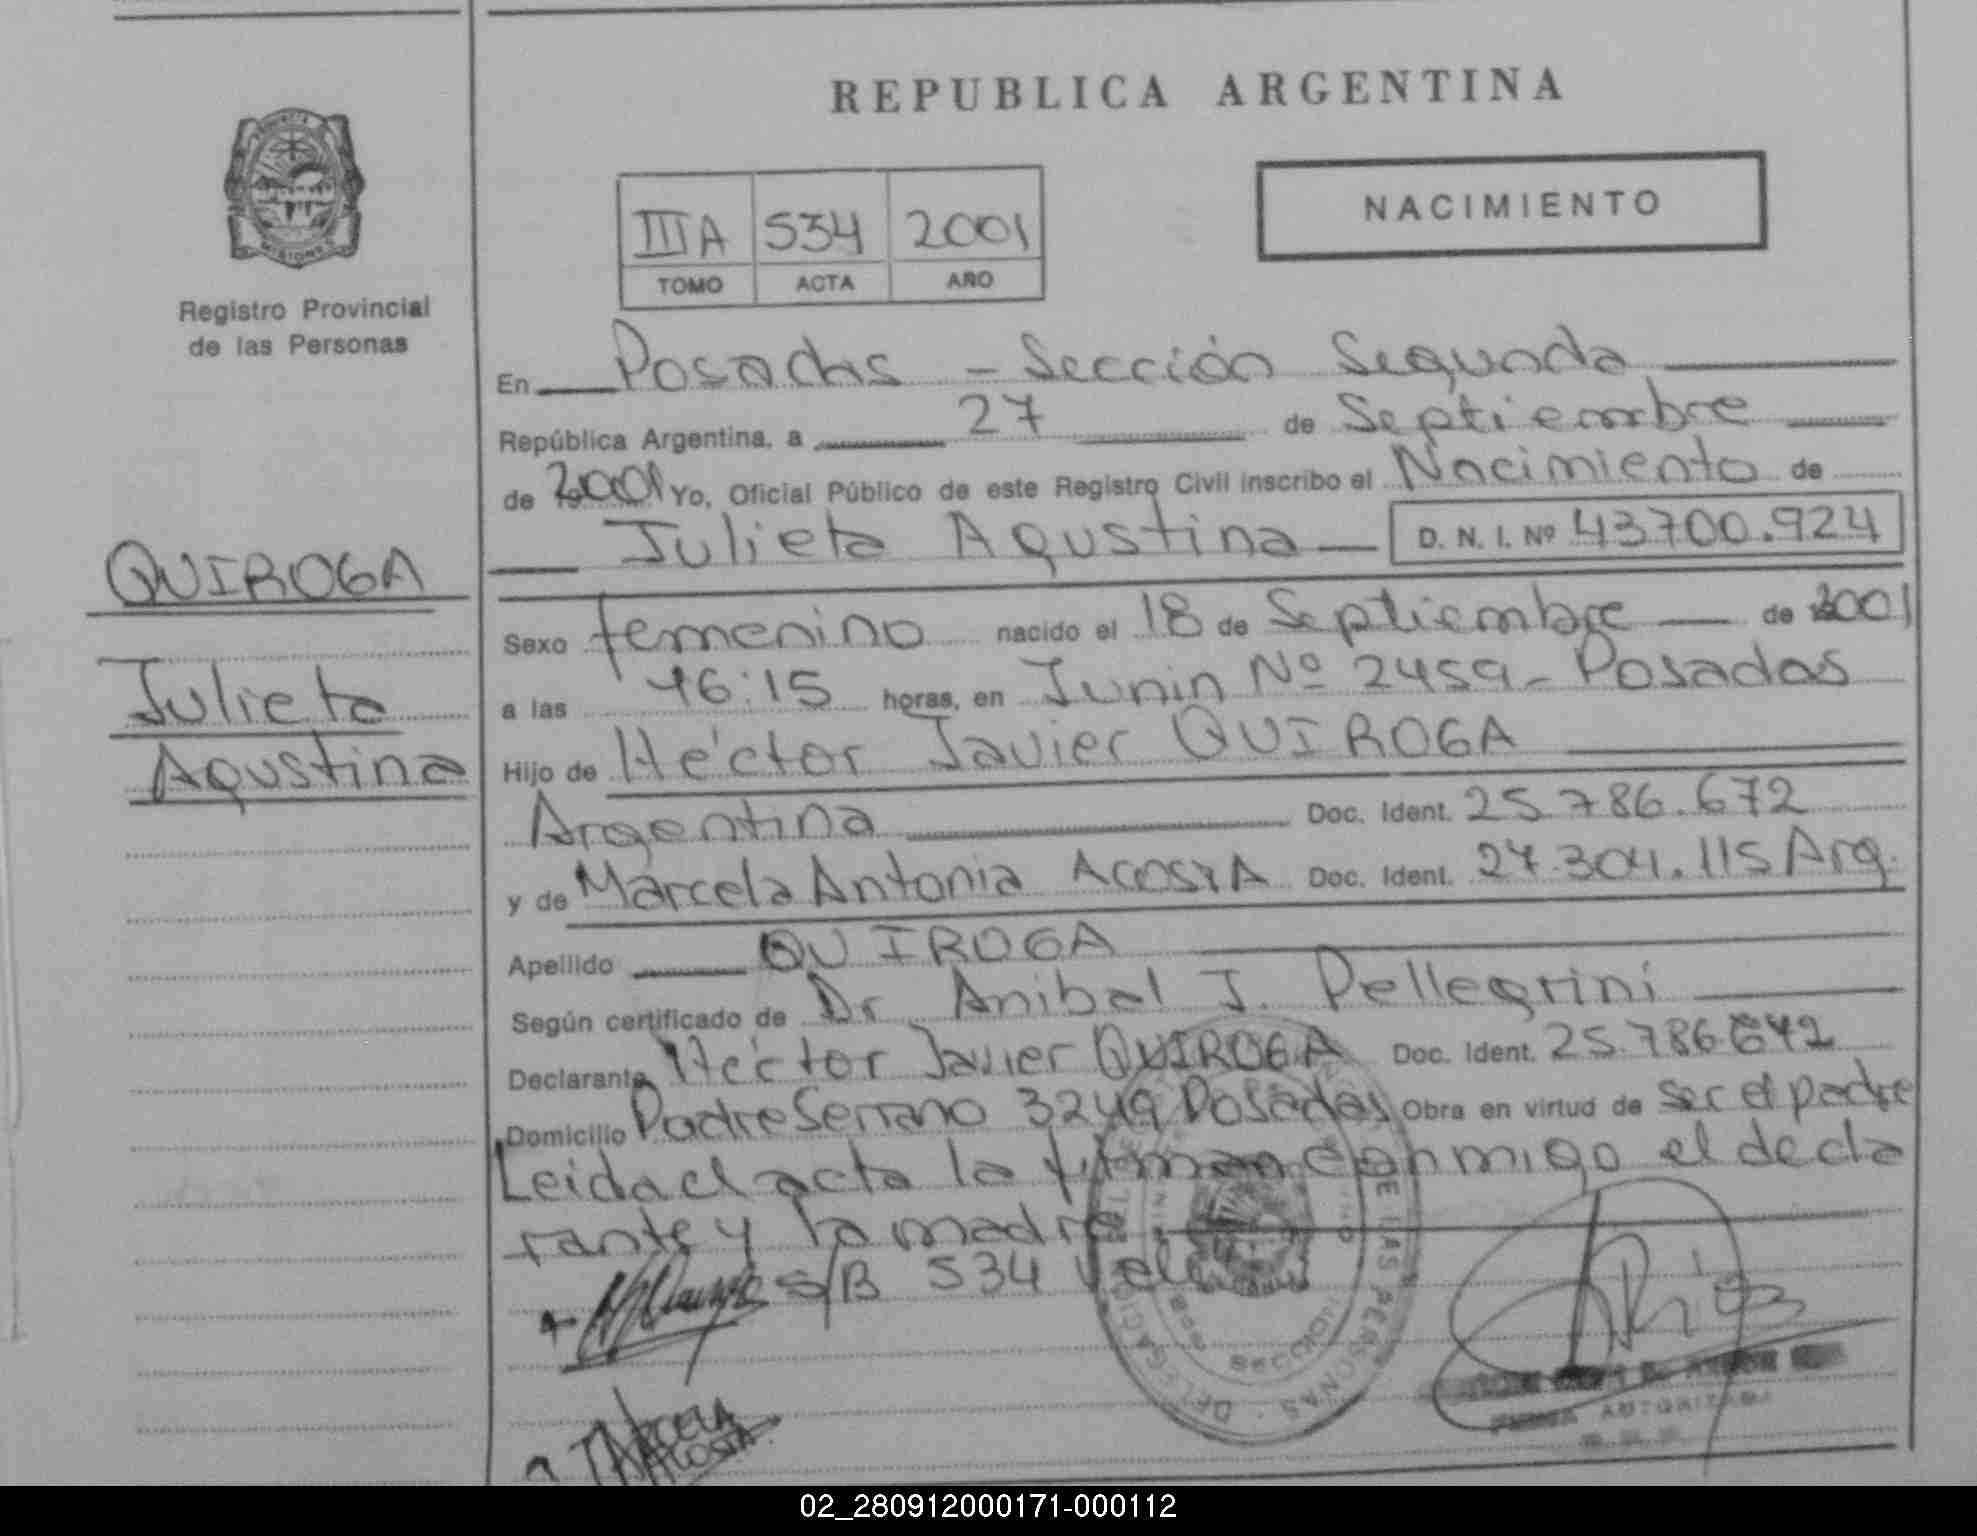 REPUBLICA ARGENTINA
NACIMIENTO
IIIA 534 2001
TOMO ACTA AÑO
MISIONES
Registro Provincial
de las Personas
QUIROGA
Julieta
Agustina
En Posadas - Sección Segunda
República Argentina, a 27 de Septiembre
de 2001 Yo, Oficial Público de este Registro Civil inscribo el Nacimiento de
Julieta Agustina D. N. I. Nº 43700.924
Sexo femenino nacido el 18 de Septiembre de 2001
a las 16:15 horas, en Junin Nº 2459 - Posadas
Hijo de Héctor Javier QUIROGA
Argentina Doc. Ident. 25.786.672
y de Marcela Antonia ACOSTA Doc. Ident. 27.304.115 Arg.
Apellido QUIROGA
Según certificado de Dr Anibal J. Pellegrini
Declarante Héctor Javier QUIROGA Doc. Ident. 25.786.672
Domicilio Padre Serrano 3249 Posadas Obra en virtud de ser el padre
Leida el acta la firman conmigo el decla
rante y la madre
S/B 534 Vale
DE LAS PERSONAS - DELEGACION
MARCELA
ACOSTA
FIRMA AUTORIZADA
02_280912000171-000112